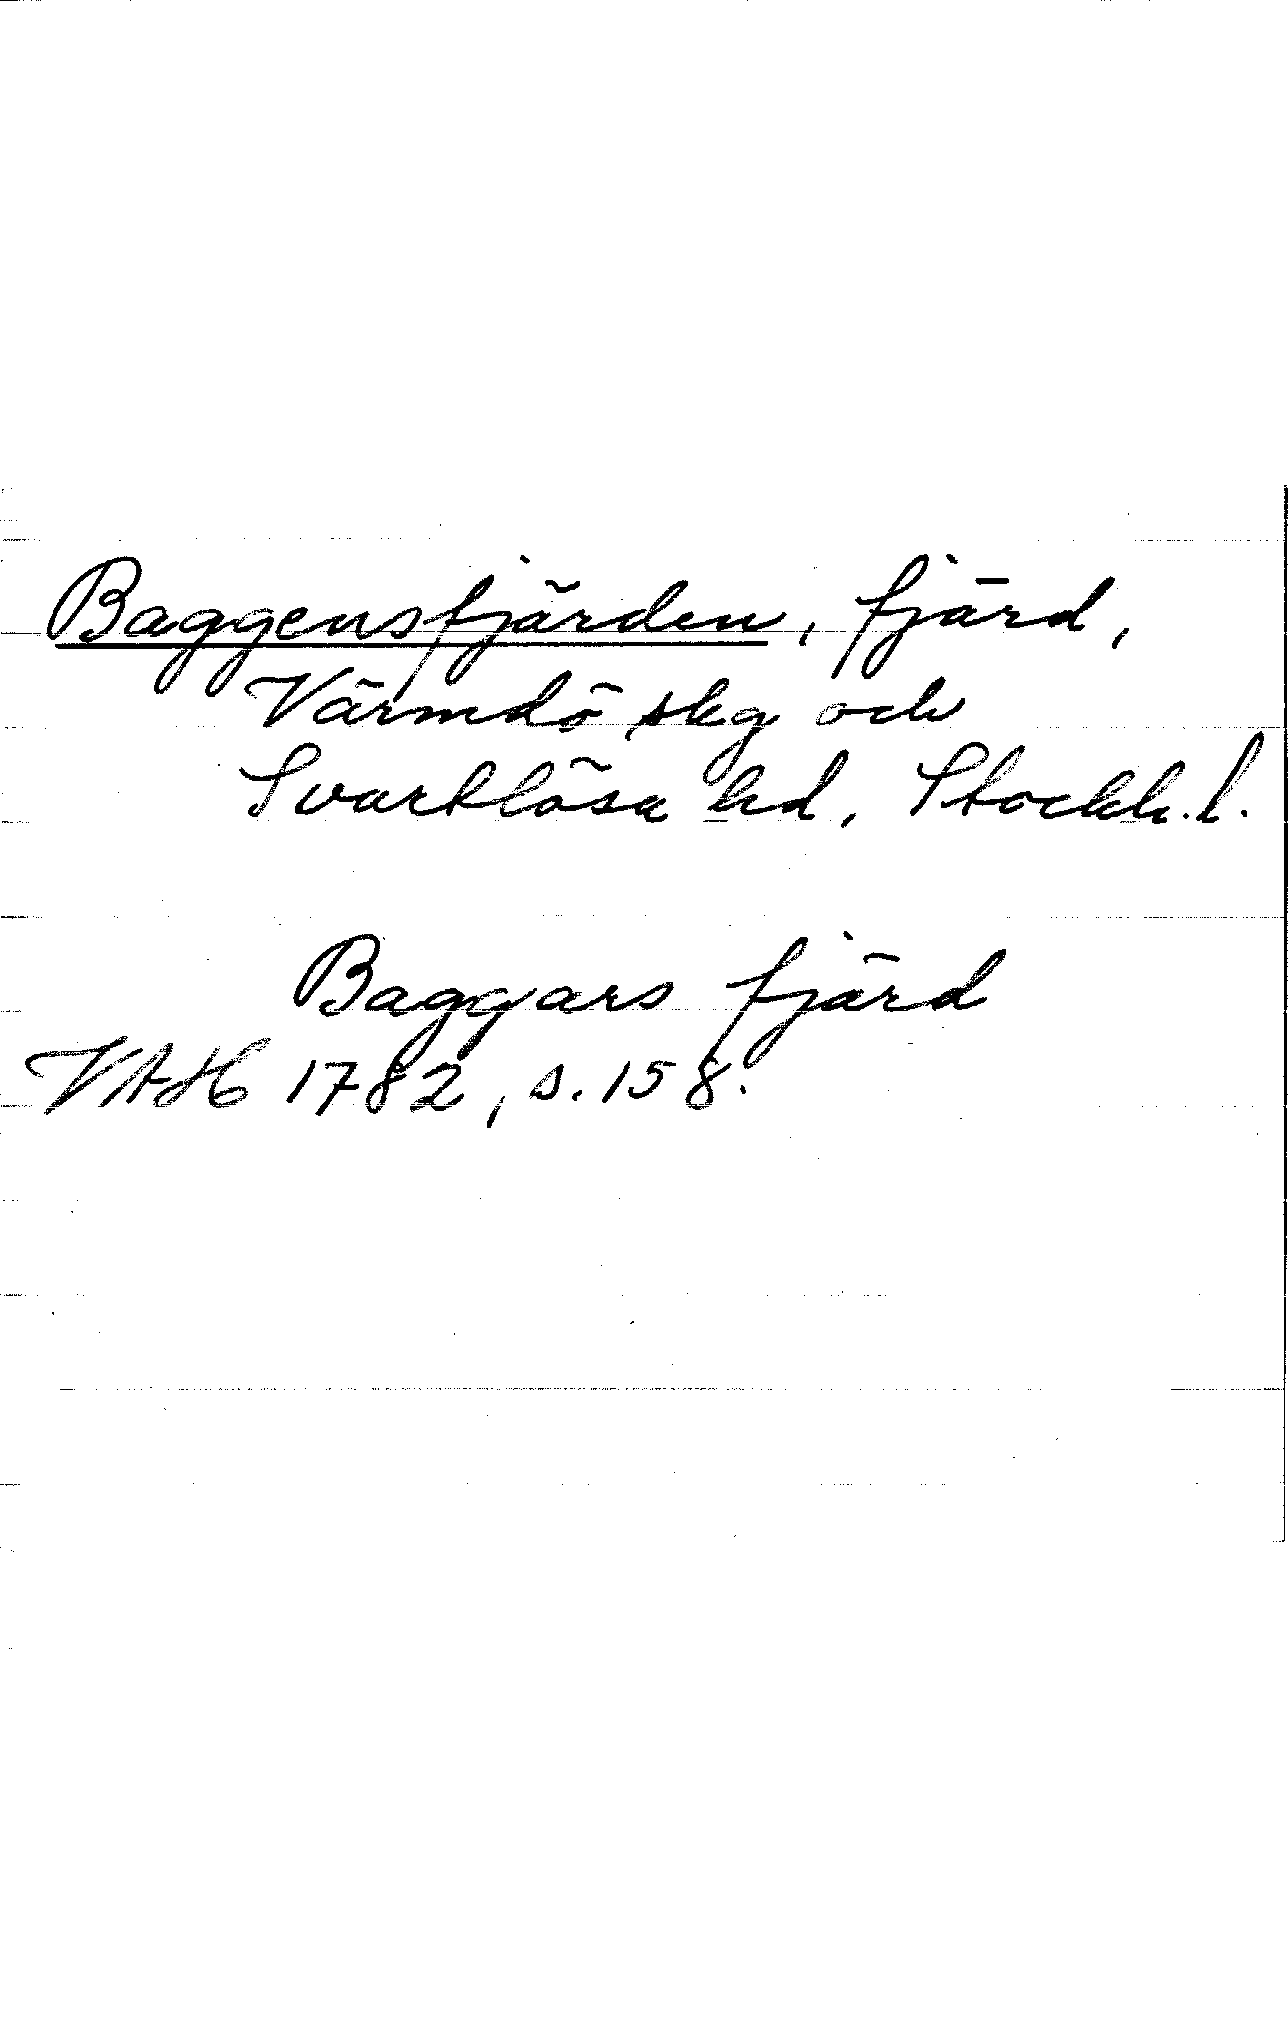 Baggensfjärden, fjärd,
Värmdö skg och
Svartlösa hd, Stockh. l.
Baggars fjärd
VAH 1782, s. 158.